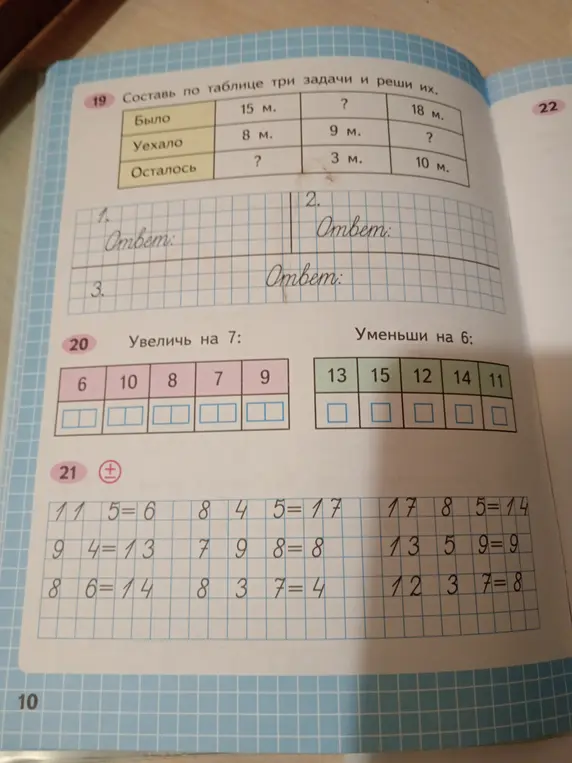 19 Составь по таблице три задачи и реши их.
Было 15 м. ? 18 м.
Уехало 8 м. 9 м. ?
Осталось ? 3 м. 10 м.
1. 2.
Ответ: Ответ:
3. Ответ:
20 Увеличь на 7: Уменьши на 6:
6 10 8 7 9 13 15 12 14 11
21 ±
11 5=6 8 4 5=17 17 8 5=14
9 4=13 7 9 8=8 13 5 9=9
8 6=14 8 3 7=4 12 3 7=8
10
22